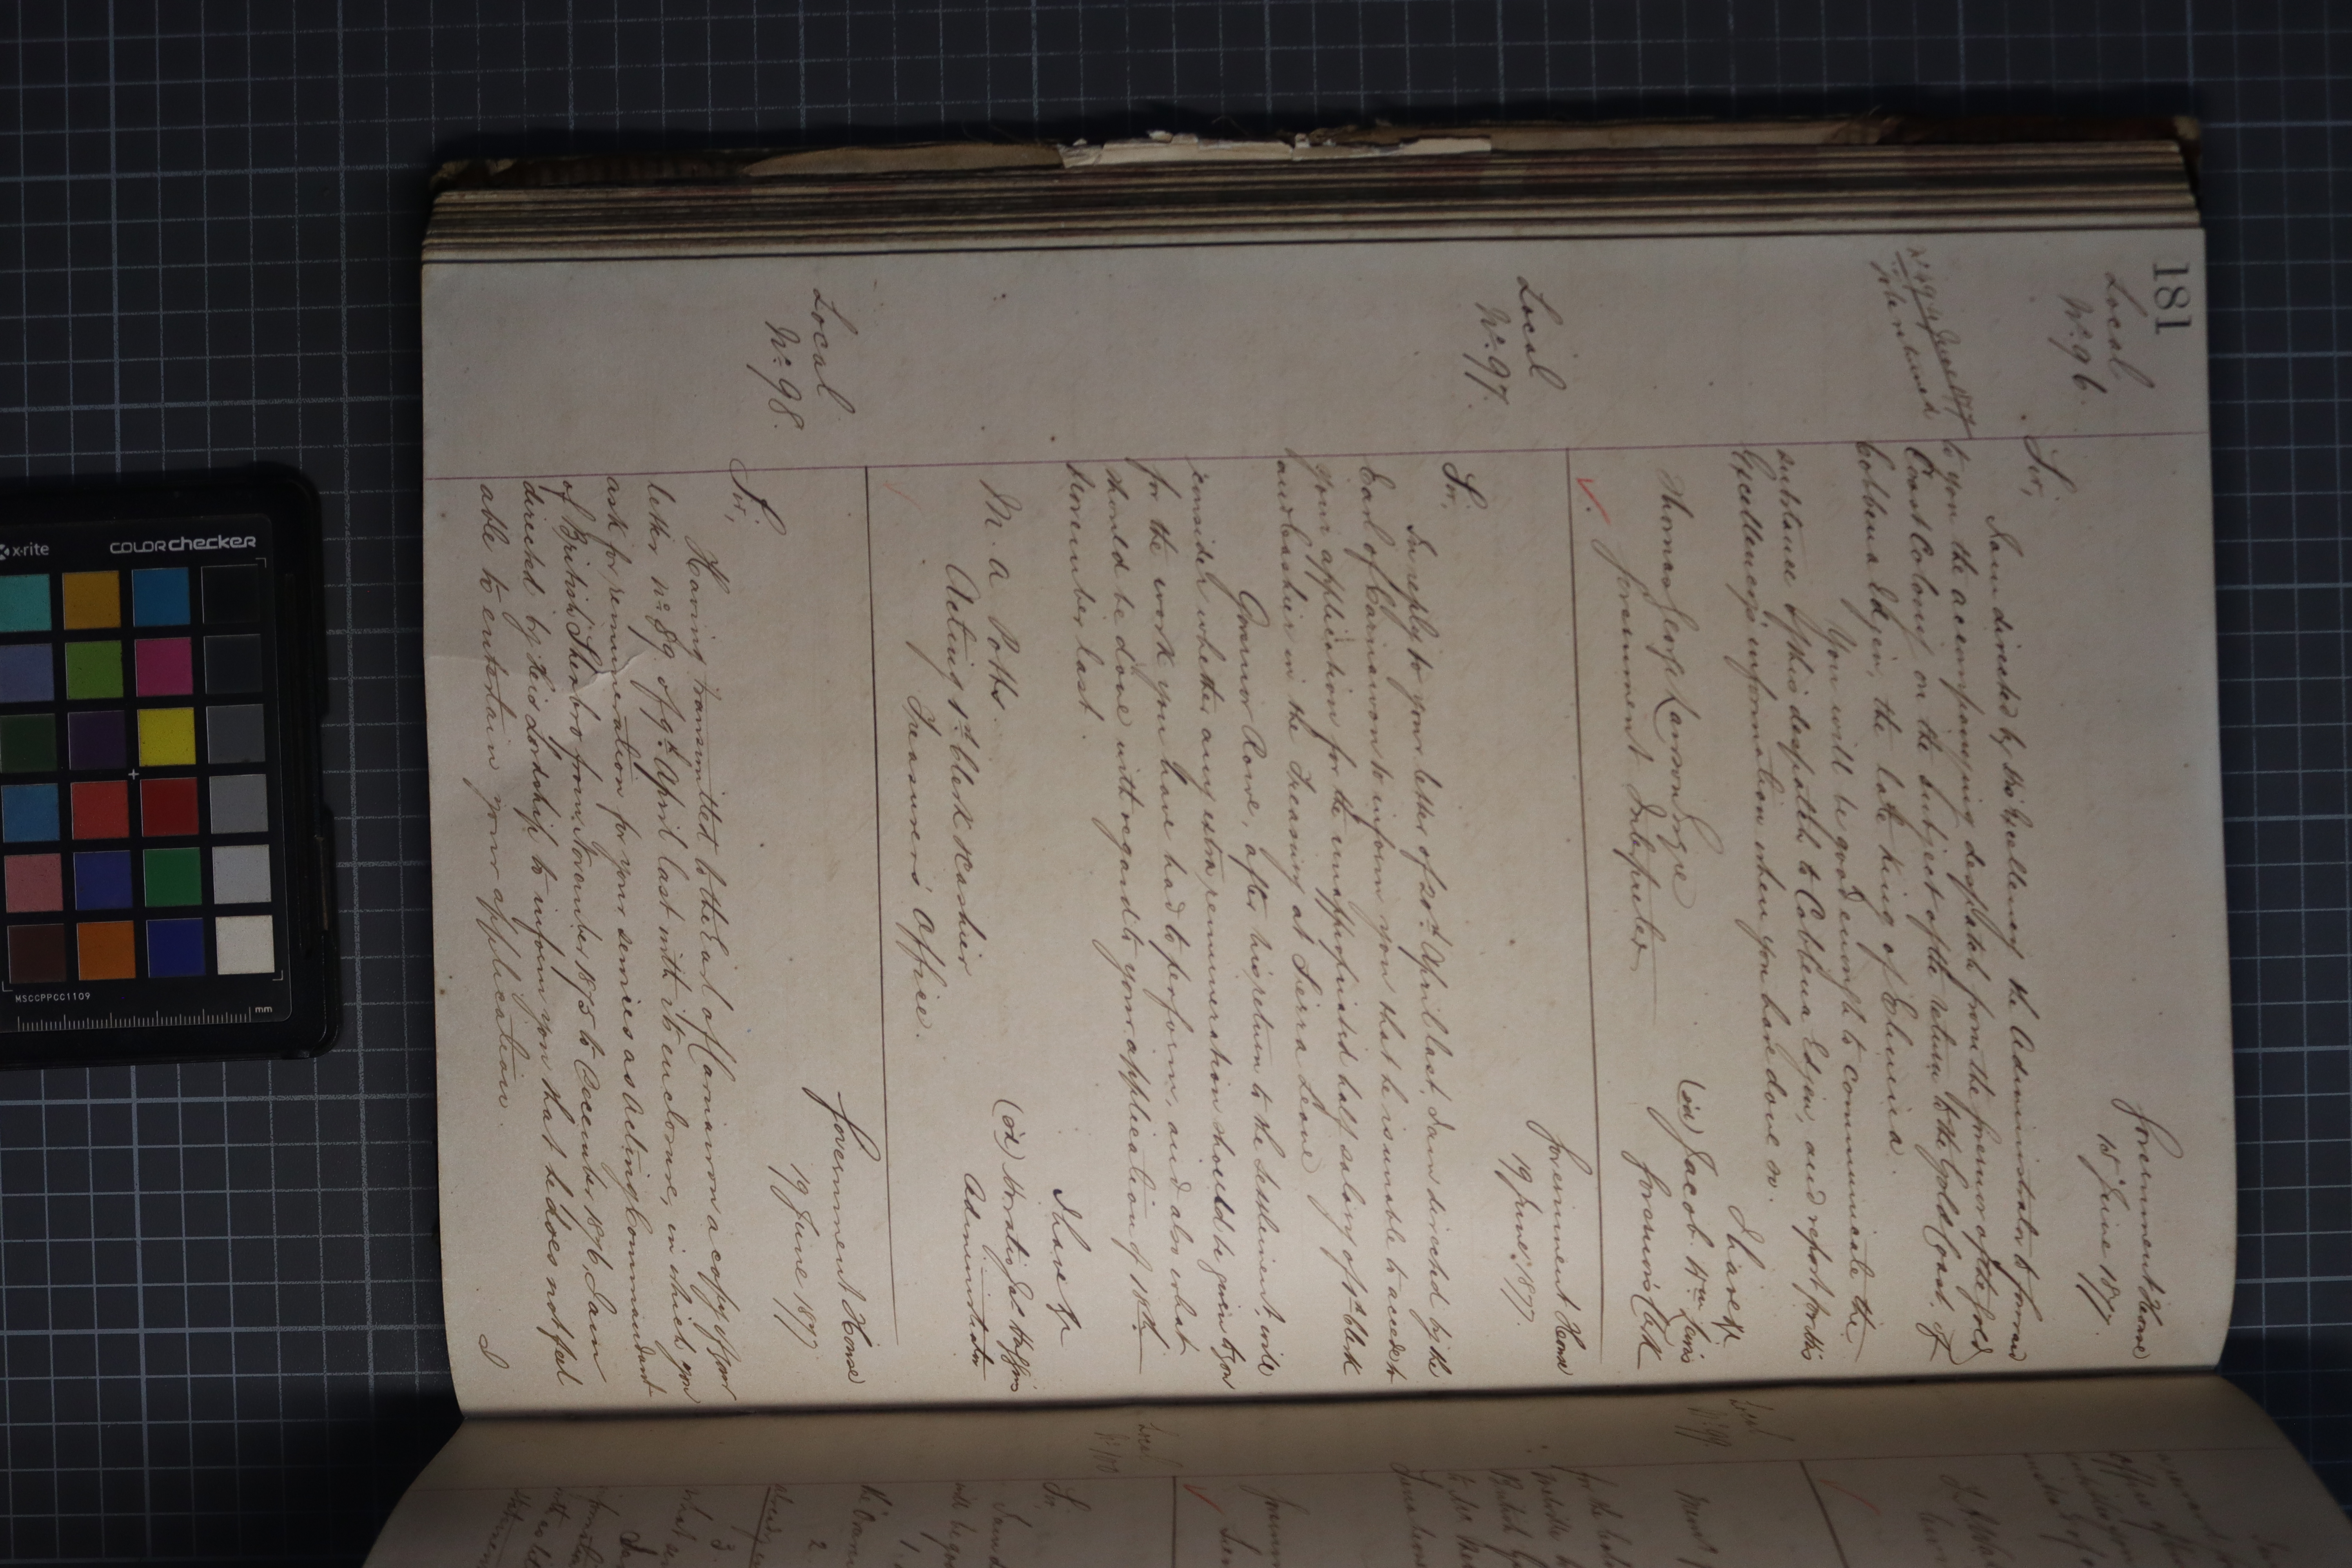 181
Local
No. 96.
Government House
15 June 1877.
Sir,
I am directed by His Excellency the Administrator to forward
to you the accompanying despatch from the Governor of the Gold
Coast Colony on the subject of the return to the Gold Coast, of
Cobbina Edjin, the late King of Elmina.
You will be good enough to communicate the
substance of this despatch to Cobbina Edjin, and report for His
Excellency's information when you have done so.
I have &c
(sd) Jacob Wm Lewis
Governor's Clerk
Thomas George Lawson Esqre
Government Interpreter
Local
No. 97.
Government House
19 June 1877.
Sir,
In reply to your letter of 20th April last, I am directed by the
Earl of Carnarvon to inform you that he is unable to accede to
your application for the unappropriated half salary of 1st Clerk
and Cashier in the Treasury at Sierra Leone
Governor Rowe, after his return to the Settlement, will
consider whether any extra remuneration should be given to you
for the work you have had to perform, and also what
should be done with regard to your application of 18th
November last.
I have &c
(sd) Horatio Jas Huggins
Administrator
M. A. Potts
Acting 1st Clerk & Cashier
Treasurer's Office.
Local
No. 98.
Government House
19 June 1877
Sir,
Having transmitted to the Earl of Carnarvon a copy of your
letter No. 89 of 9th April last with its enclosure, in which you
ask for remuneration for your services as Acting Commandant
of British Sherbro from November 1875 to December 1876, I am
directed by His Lordship to inform you that he does not feel
able to entertain your application.
I
Local
No. 99.
Local
No. 100
Sir,
1.
2.
3.
x-rite
COLORchecker
MSCCPPCC1109
mm